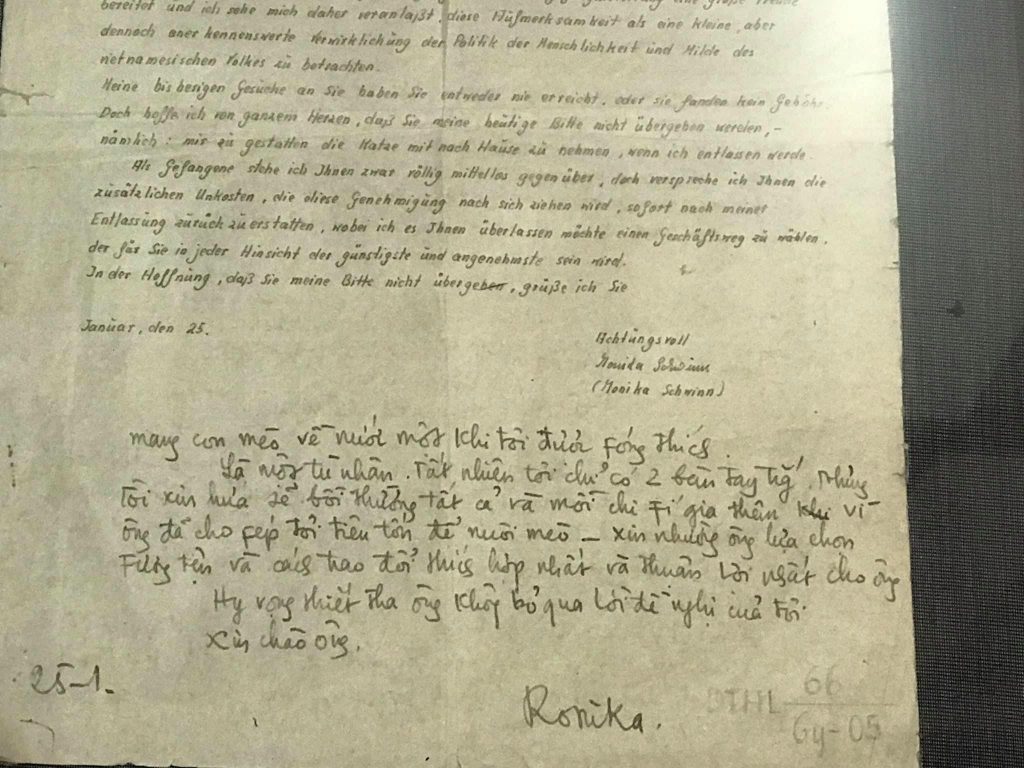 bereitet und ich sehe mich daher veranlaßt, diese Aufmerksamkeit als eine kleine, aber
dennoch anerkennenswerte Verwirklichung der Politik der Menschlichkeit und Milde des
vietnamesischen Volkes zu betrachten.
Meine bisherigen Gesuche an Sie haben Sie entweder nie erreicht, oder sie fanden kein Gehör.
Doch hoffe ich von ganzem Herzen, daß Sie meine heutige Bitte nicht übergehen werden, –
nämlich: mir zu gestatten die Katze mit nach Hause zu nehmen, wenn ich entlassen werde.
Als Gefangene stehe ich Ihnen zwar völlig mittellos gegenüber, doch verspreche ich Ihnen die
zusätzlichen Unkosten, die diese Genehmigung nach sich ziehen wird, sofort nach meiner
Entlassung zurückzuerstatten, wobei ich es Ihnen überlassen möchte einen Geschäftsweg zu wählen,
der für Sie in jeder Hinsicht der günstigste und angenehmste sein wird.
In der Hoffnung, daß Sie meine Bitte nicht übergehen, grüße ich Sie
Januar, den 25.
Achtungsvoll
Monika Schwinn
(Monika Schwinn)
mang con mèo về nước một khi tôi được fóng thích.
Là một tù nhân. Tất nhiên tôi chỉ có 2 bàn tay, Nhưng
tôi xin hứa sẽ bồi thường tất cả và mọi chi fí gia thêm khi vì
ông đã cho fép tôi tiêu tốn để nuôi mèo – xin nhường ông lựa chọn
Fương tiện và cách trao đổi thích hợp nhất và thuận lợi nhất cho ông
Hy vọng thiết tha ông không bỏ qua lời đề nghị của tôi
Xin chào ông.
25-1.
Ronika.
BTHL 66
Gy-05